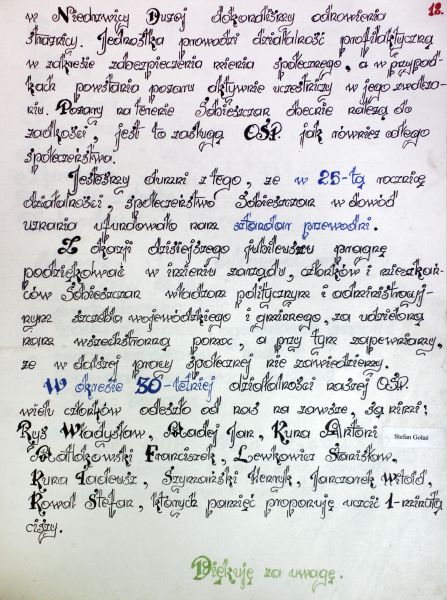 12.
w Niedrzwicy Dużej dokonaliśmy odnowienia
strażnicy. Jednostka prowadzi działalność profilaktyczną
w zakresie zabezpieczenia mienia społecznego, a w przypad-
kach powstania pożaru aktywnie uczestniczy w jego zwalcza-
niu. Pożary na terenie Sobieszczan obecnie należą do
rzadkości, jest to zasługą OSP. jak również całego
społeczeństwa.
Jesteśmy dumni z tego, że w 25-tą rocznicę
działalności, społeczeństwo Sobieszczan w dowód
uznania ufundowało nam sztandar przewodni.
Z okazji dzisiejszego jubileuszu pragnę
podziękować w imieniu zarządu, członków i mieszkań-
ców Sobieszczan władzom politycznym i administracyj-
nym szczebla wojewódzkiego i gminnego, za udzieloną
nam wszechstronną pomoc, a przy tym zapewniamy,
że w dalszej pracy społecznej nie zawiedziemy.
W okresie 50-letniej działalności naszej OSP.
wielu członków odeszło od nas na zawsze, są nimi:
Ryś Władysław, Madej Jan, Kuna Antoni
Stefan Gołaś
Małakowski Franciszek, Lewkowicz Stanisław,
Kuna Tadeusz, Szymański Henryk, Janczarek Witold,
Kowal Stefan, których pamięć proponuję uczcić 1-minutą
ciszy.
Dziękuję za uwagę.